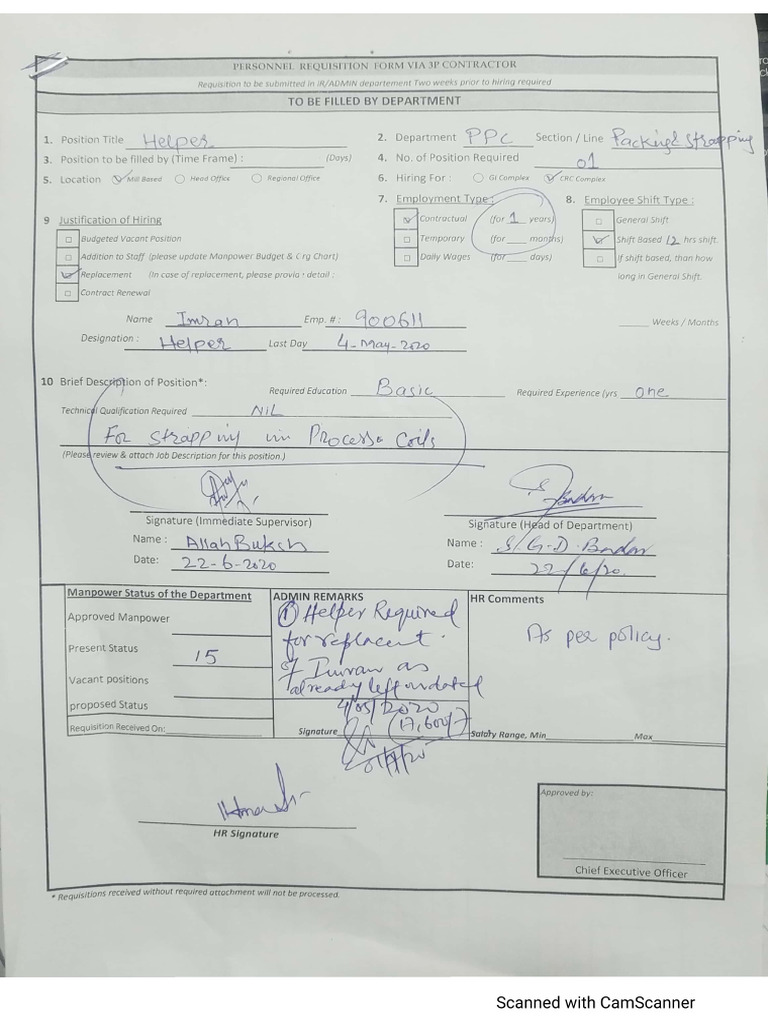 PERSONNEL REQUISITION FORM VIA 3P CONTRACTOR
Requisition to be submitted in IR/ADMIN departement Two weeks prior to hiring required
TO BE FILLED BY DEPARTMENT
1. Position Title Helper 2. Department PPC Section / Line Packing & Strapping
3. Position to be filled by (Time Frame) : (Days) 4. No. of Position Required 01
5. Location Mill Based Head Office Regional Office 6. Hiring For : GI Complex CRC Complex
7. Employment Type : 8. Employee Shift Type :
9 Justification of Hiring Contractual (for 1 years) General Shift
Budgeted Vacant Position Temporary (for ___ months) Shift Based 12 hrs shift.
Addition to Staff (please update Manpower Budget & Org Chart) Daily Wages (for ___ days) If shift based, than how
Replacement (In case of replacement, please provia · detail : long in General Shift.
Contract Renewal
Name Imran Emp. # : 900611 Weeks / Months
Designation : Helper Last Day 4-May-2020
10 Brief Description of Position*: Required Education Basic Required Experience (yrs one
Technical Qualification Required NIL
For Strapping in Process Coils
(Please review & attach Job Description for this position.)
Signature (Immediate Supervisor) Signature (Head of Department)
Name : Allah Buksh Name :
Date: 22-6-2020 Date: 22/6/20.
Manpower Status of the Department ADMIN REMARKS HR Comments
Approved Manpower ① Helper Required As per policy.
Present Status 15 for replacent
Vacant positions of Imran as
already left on dated
proposed Status 4/05/2020
Requisition Received On: Signature (17,600/-) Salary Range, Min Max
HR Signature
Approved by:
Chief Executive Officer
* Requisitions received without required attachment will not be processed.
Scanned with CamScanner